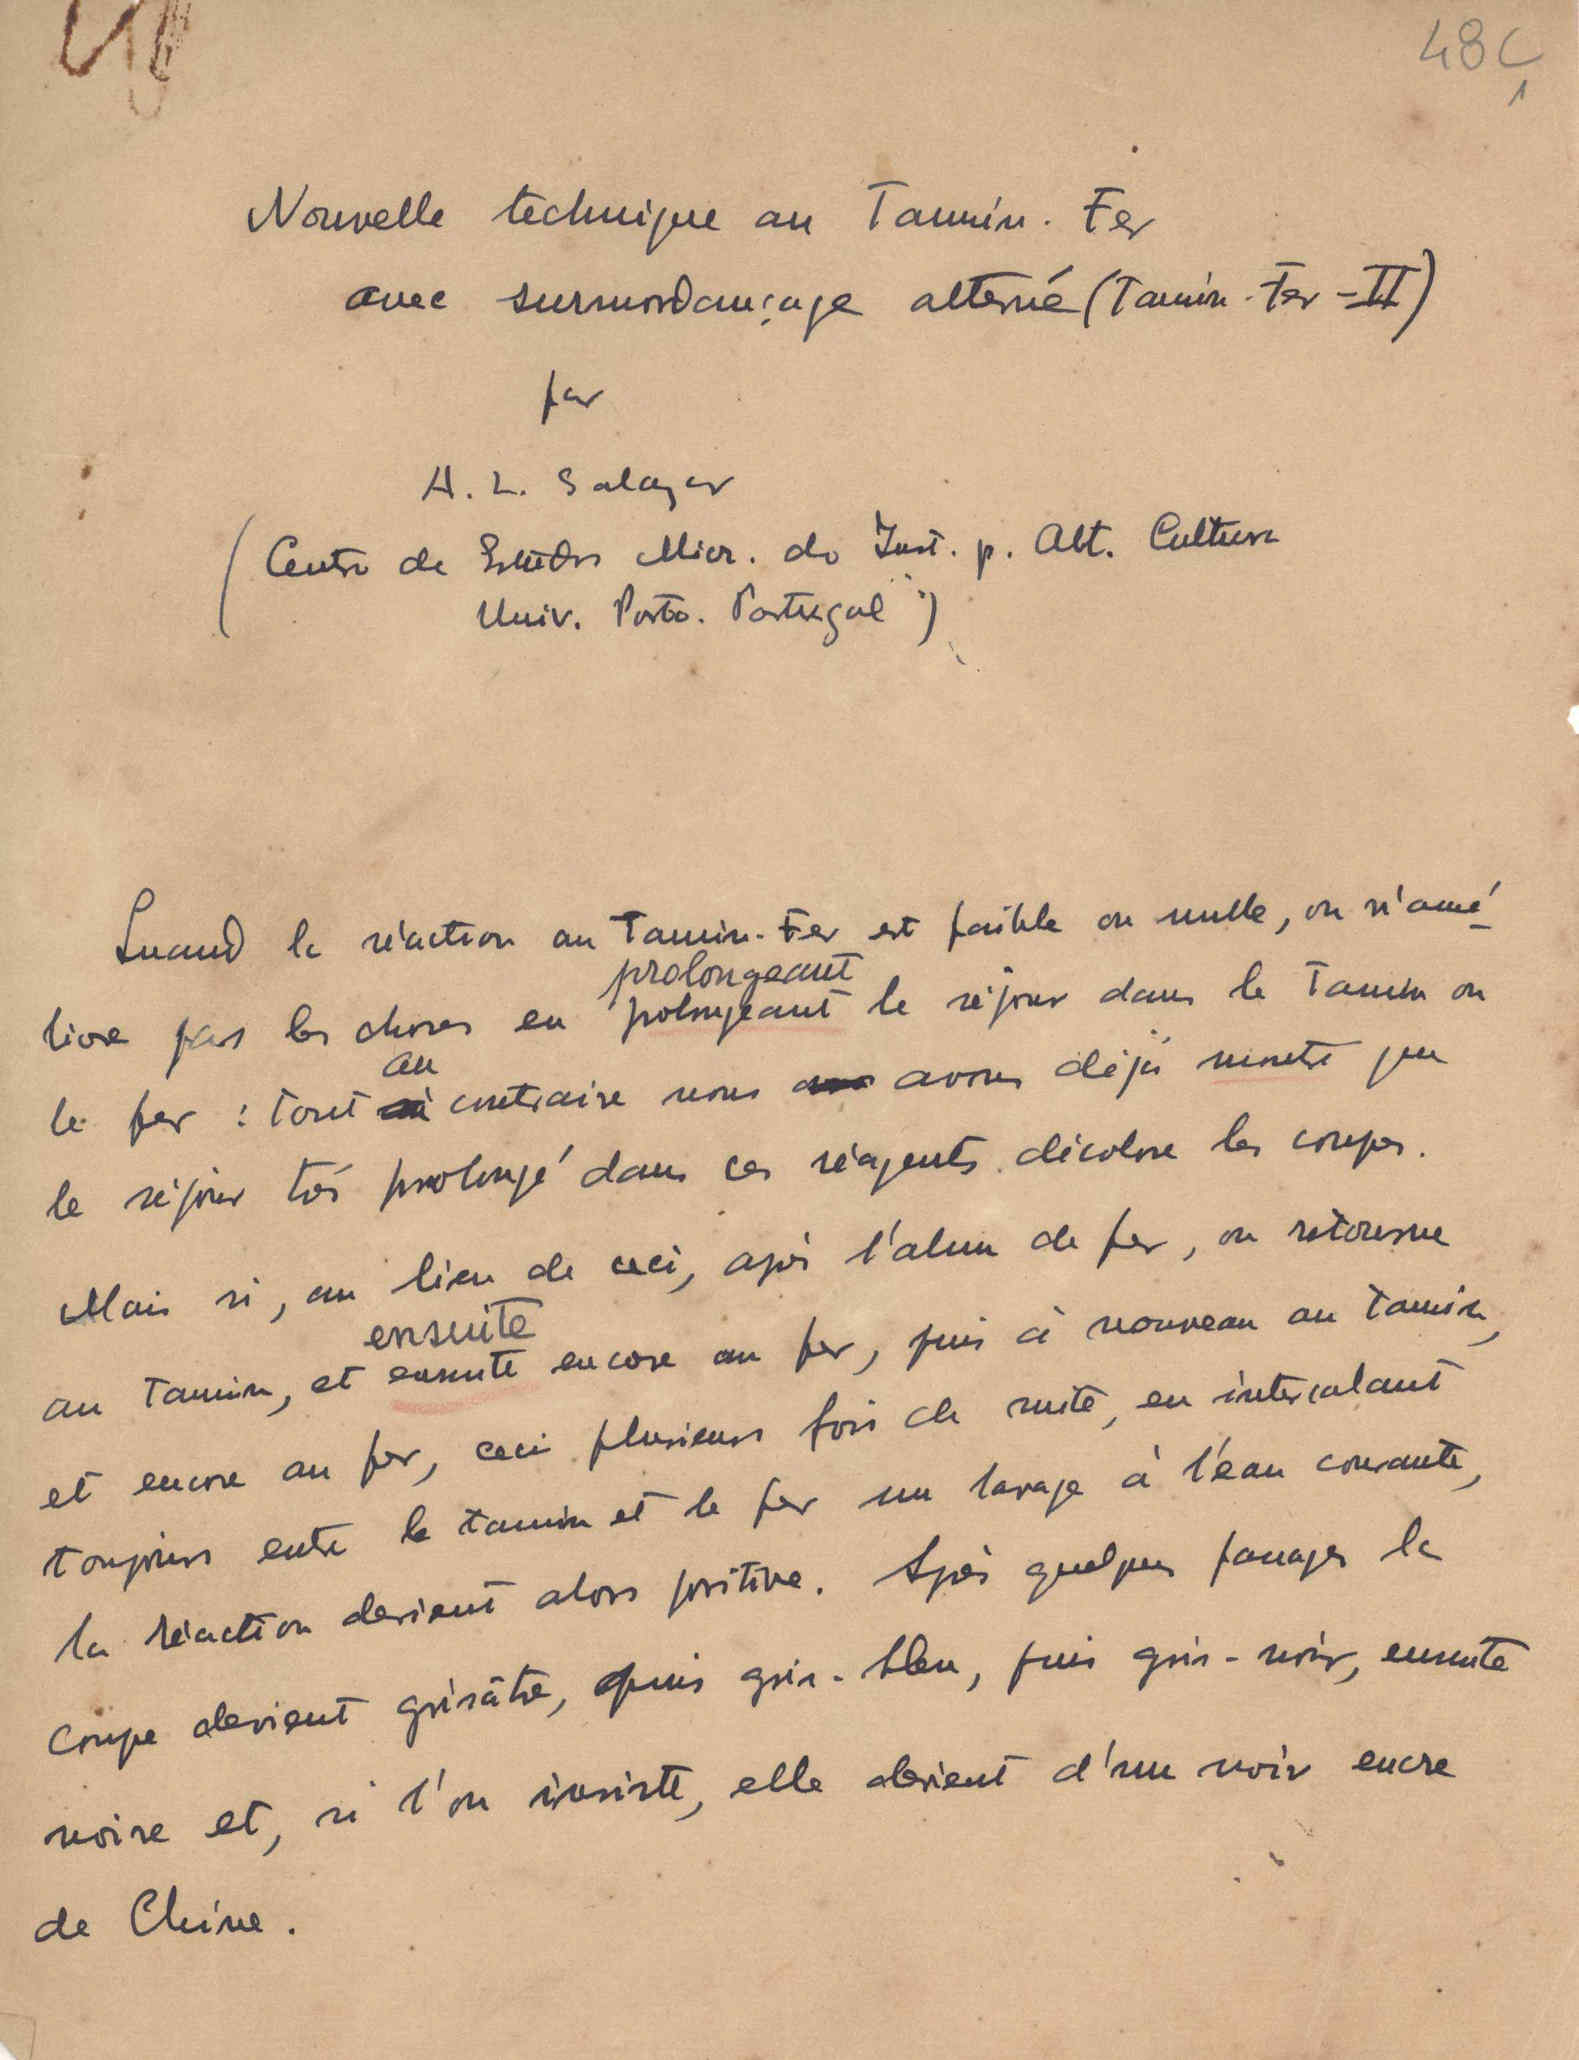 48C
1
Nouvelle technique au Tannin-Fer
avec surmordançage alterné (Tannin-Fer-II)
par
A. L. Salazar
(Centro de Estudos Micr. do Inst. p. Alt. Cultura
Univ. Porto. Portugal)
Quand la réaction au Tannin-Fer est faible ou nulle, on n'amé-
liore pas les choses en prolongeant le séjour dans le Tannin ou
prolongeant
le fer : tout au contraire nous avons déjà montré que
le séjour très prolongé dans ces réagents décolore les coupes.
Mais si, au lieu de ceci, après l'alun de fer, on retourne
au Tannin, et ensuite encore au fer, puis à nouveau au tannin,
ensuite
et encore au fer, ceci plusieurs fois de suite, en intercalant
toujours entre le tannin et le fer un lavage à l'eau courante,
la réaction devient alors positive. Après quelques passages la
coupe devient grisâtre, puis gris-bleu, puis gris-noir, ensuite
noire et, si l'on insiste, elle devient d'un noir encre
de Chine.